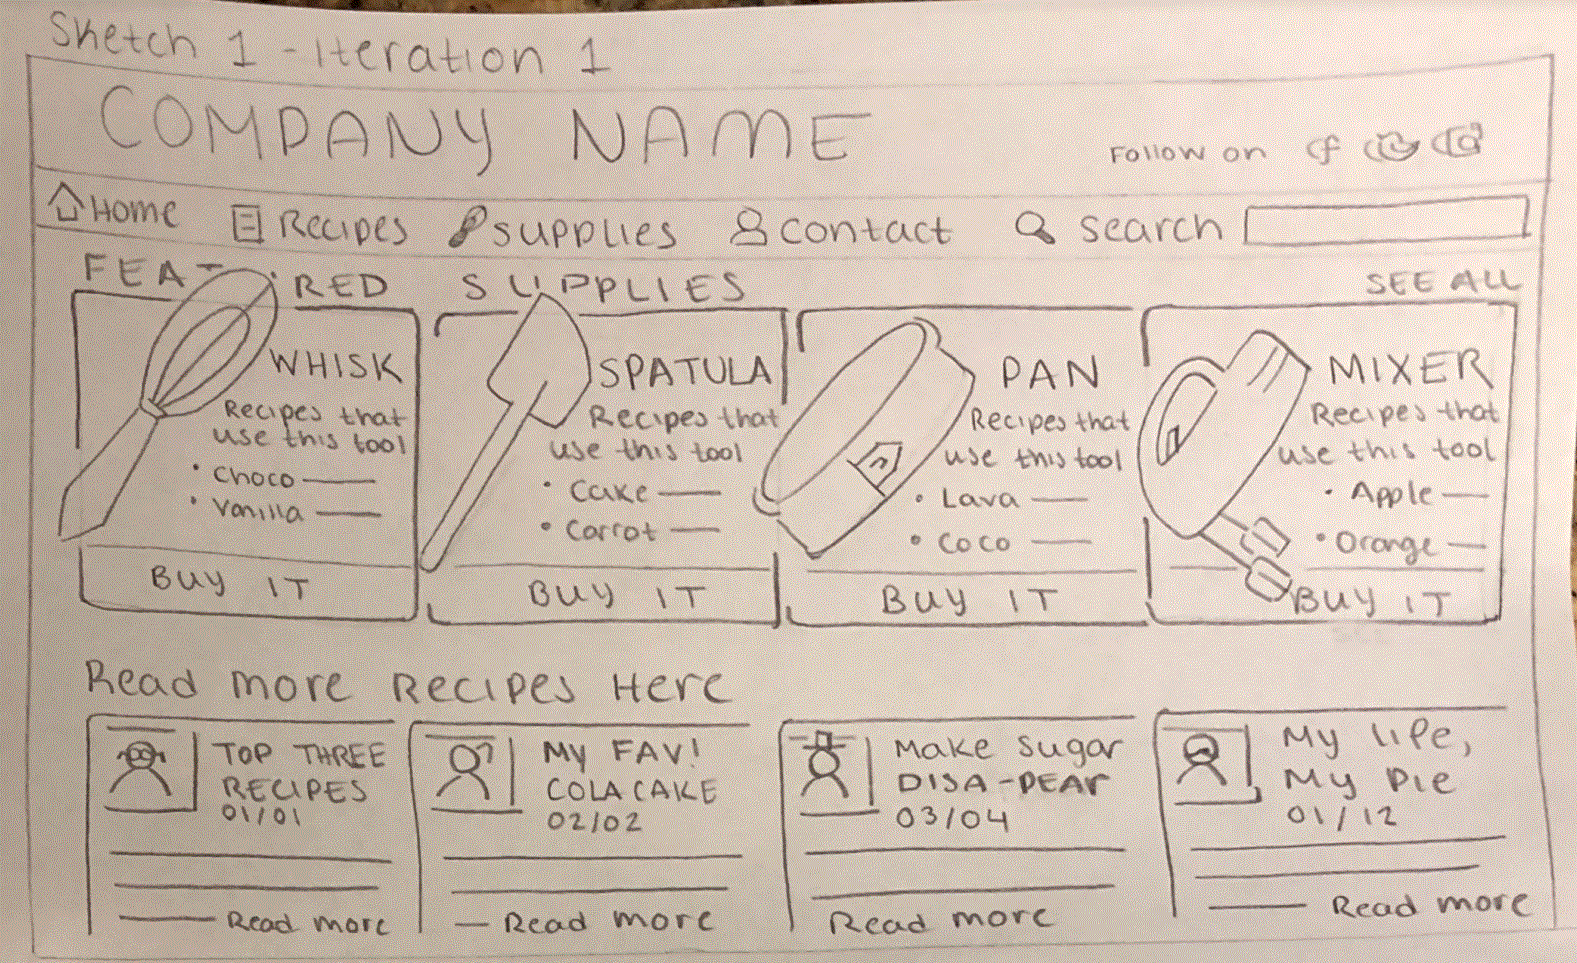 Sketch 1 - Iteration 1
COMPANY NAME
Follow on
Home
Recipes
supplies
contact
search
FEAT RED SUPPLIES
SEE ALL
WHISK
Recipes that
use this tool
• Choco
• Vanilla
BUY IT
SPATULA
Recipes that
use this tool
• Cake
• Carrot
BUY IT
PAN
Recipes that
use this tool
• Lava
• Coco
BUY IT
MIXER
Recipes that
use this tool
• Apple
• Orange
BUY IT
Read more Recipes Here
TOP THREE
RECIPES
01/01
Read more
MY FAV!
COLA CAKE
02/02
Read more
Make sugar
DISA-PEAR
03/04
Read more
My life,
My Pie
01/12
Read more